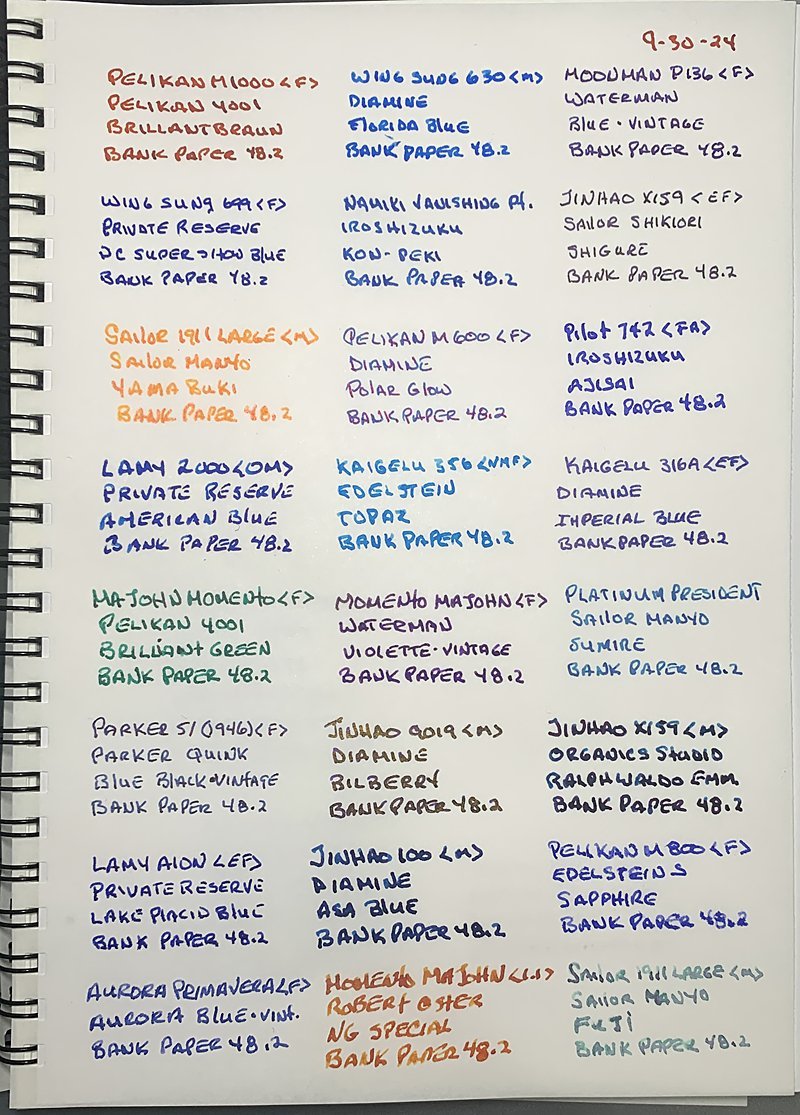 9-30-24
PELIKAN M1000 <F>
PELIKAN 4001
BRILLANTBRAUN
BANK PAPER 48.2
WING SUNG 630 <M>
DIAMINE
FLORIDA BLUE
BANK PAPER 48.2
MOONMAN P136 <F>
WATERMAN
BLUE · VINTAGE
BANK PAPER 48.2
WING SUNG 699 <F>
PRIVATE RESERVE
DC SUPER SHOW BLUE
BANK PAPER 48.2
NAMIKI VANISHING Pt.
IROSHIZUKU
KON-PEKI
BANK PAPER 48.2
JINHAO X159 <EF>
SAILOR SHIKIORI
SHIGURE
BANK PAPER 48.2
SAILOR 1911 LARGE <M>
SAILOR MANYO
YAMABUKI
BANK PAPER 48.2
PELIKAN M600 <F>
DIAMINE
POLAR GLOW
BANK PAPER 48.2
PILOT 742 <FA>
IROSHIZUKU
AJISAI
BANK PAPER 48.2
LAMY 2000 <OM>
PRIVATE RESERVE
AMERICAN BLUE
BANK PAPER 48.2
KAIGELU 356 <NMF>
EDELSTEIN
TOPAZ
BANK PAPER 48.2
KAIGELU 316A <EF>
DIAMINE
IMPERIAL BLUE
BANK PAPER 48.2
MAJOHN MOMENTO <F>
PELIKAN 4001
BRILLIANT GREEN
BANK PAPER 48.2
MOMENTO MAJOHN <F>
WATERMAN
VIOLETTE · VINTAGE
BANK PAPER 48.2
PLATINUM PRESIDENT
SAILOR MANYO
SUMIRE
BANK PAPER 48.2
PARKER 51 (1946) <F>
PARKER QUINK
BLUE BLACK · VINTAGE
BANK PAPER 48.2
JINHAO 9019 <M>
DIAMINE
BILBERRY
BANK PAPER 48.2
JINHAO X159 <M>
ORGANICS STUDIO
RALPH WALDO EMM.
BANK PAPER 48.2
LAMY AION <EF>
PRIVATE RESERVE
LAKE PLACID BLUE
BANK PAPER 48.2
JINHAO 100 <M>
DIAMINE
ASA BLUE
BANK PAPER 48.2
PELIKAN M800 <F>
EDELSTEIN S
SAPPHIRE
BANK PAPER 48.2
AURORA PRIMAVERA <F>
AURORA BLUE · VINT.
BANK PAPER 48.2
MOMENTO MAJOHN <1.1>
ROBERT OSTER
NG SPECIAL
BANK PAPER 48.2
SAILOR 1911 LARGE <M>
SAILOR MANYO
FUJI
BANK PAPER 48.2